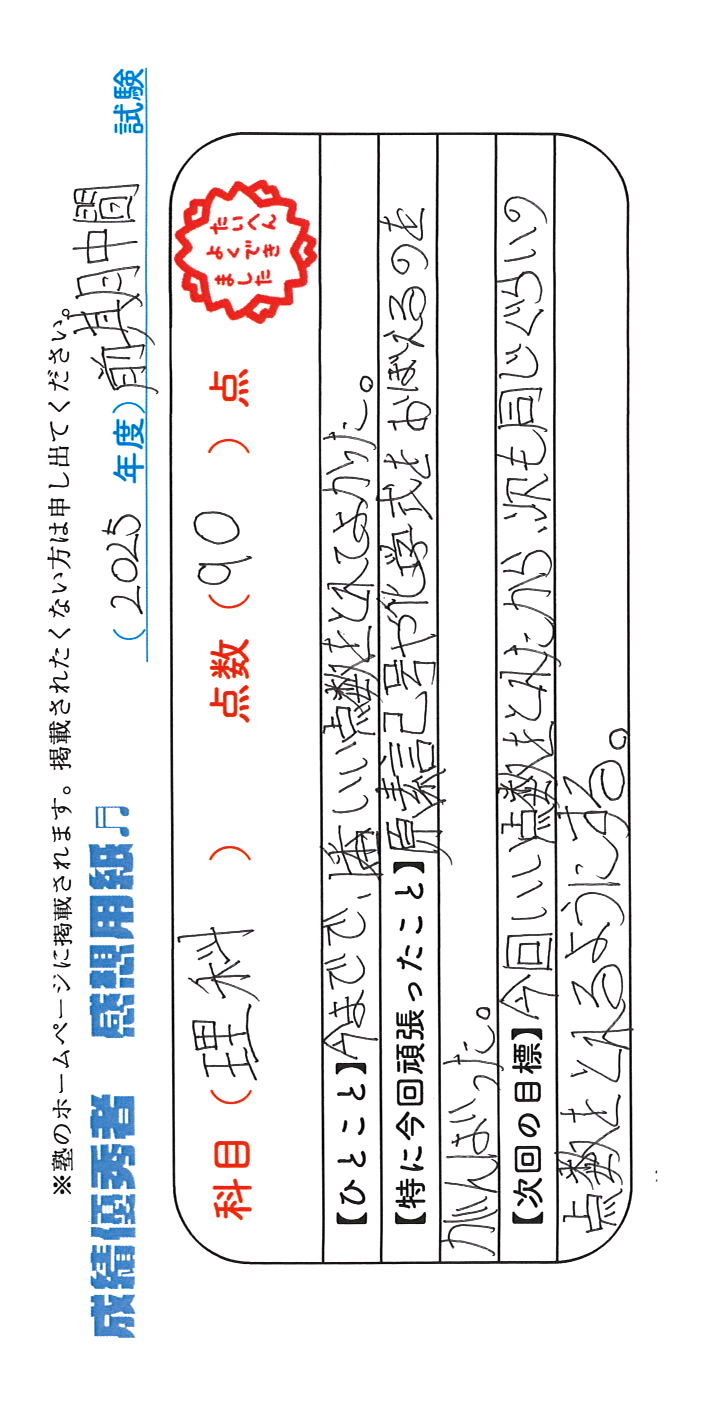 ※塾のホームページに掲載されます。掲載されたくない方は申し出てください。
成績優秀者 感想用紙♫ (2025 年度) 前期中間 試験
科目(理科) 点数(90)点
たいへん
よくでき
ました
【ひとこと】今までで、1番いい点数をとれてよかった。
【特に今回頑張ったこと】原素記号や化学式をおぼえるのを
がんばった。
【次回の目標】今回いい点数をとれたから、次も同じぐらいの
点数をとれるようにする。